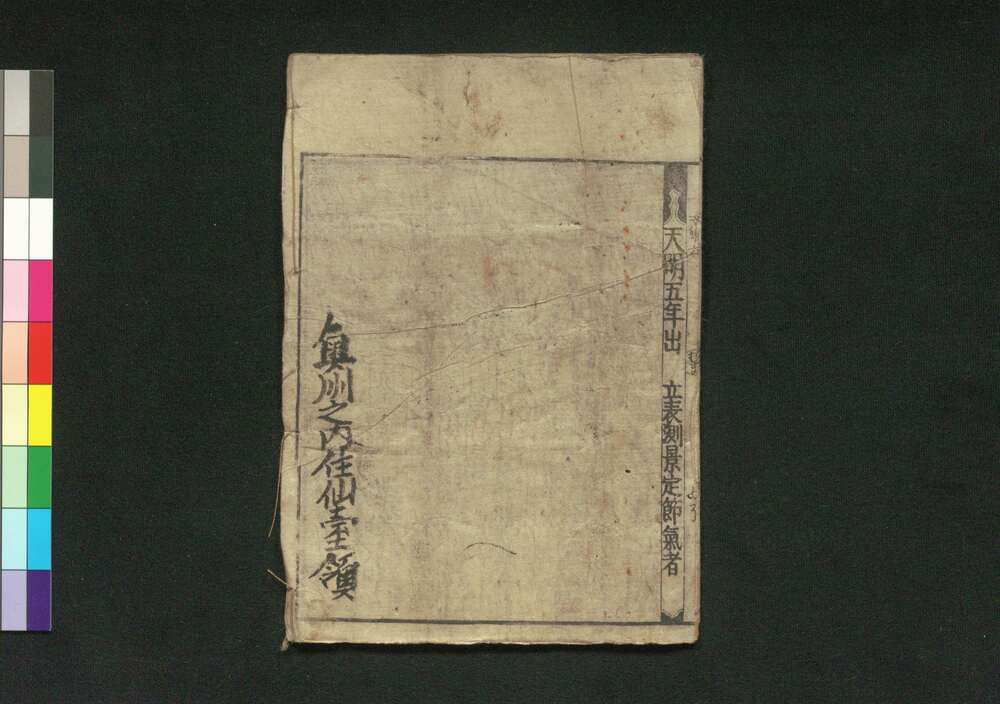 天明五年出 立表測景定節氣者
奥州之内住仙臺領